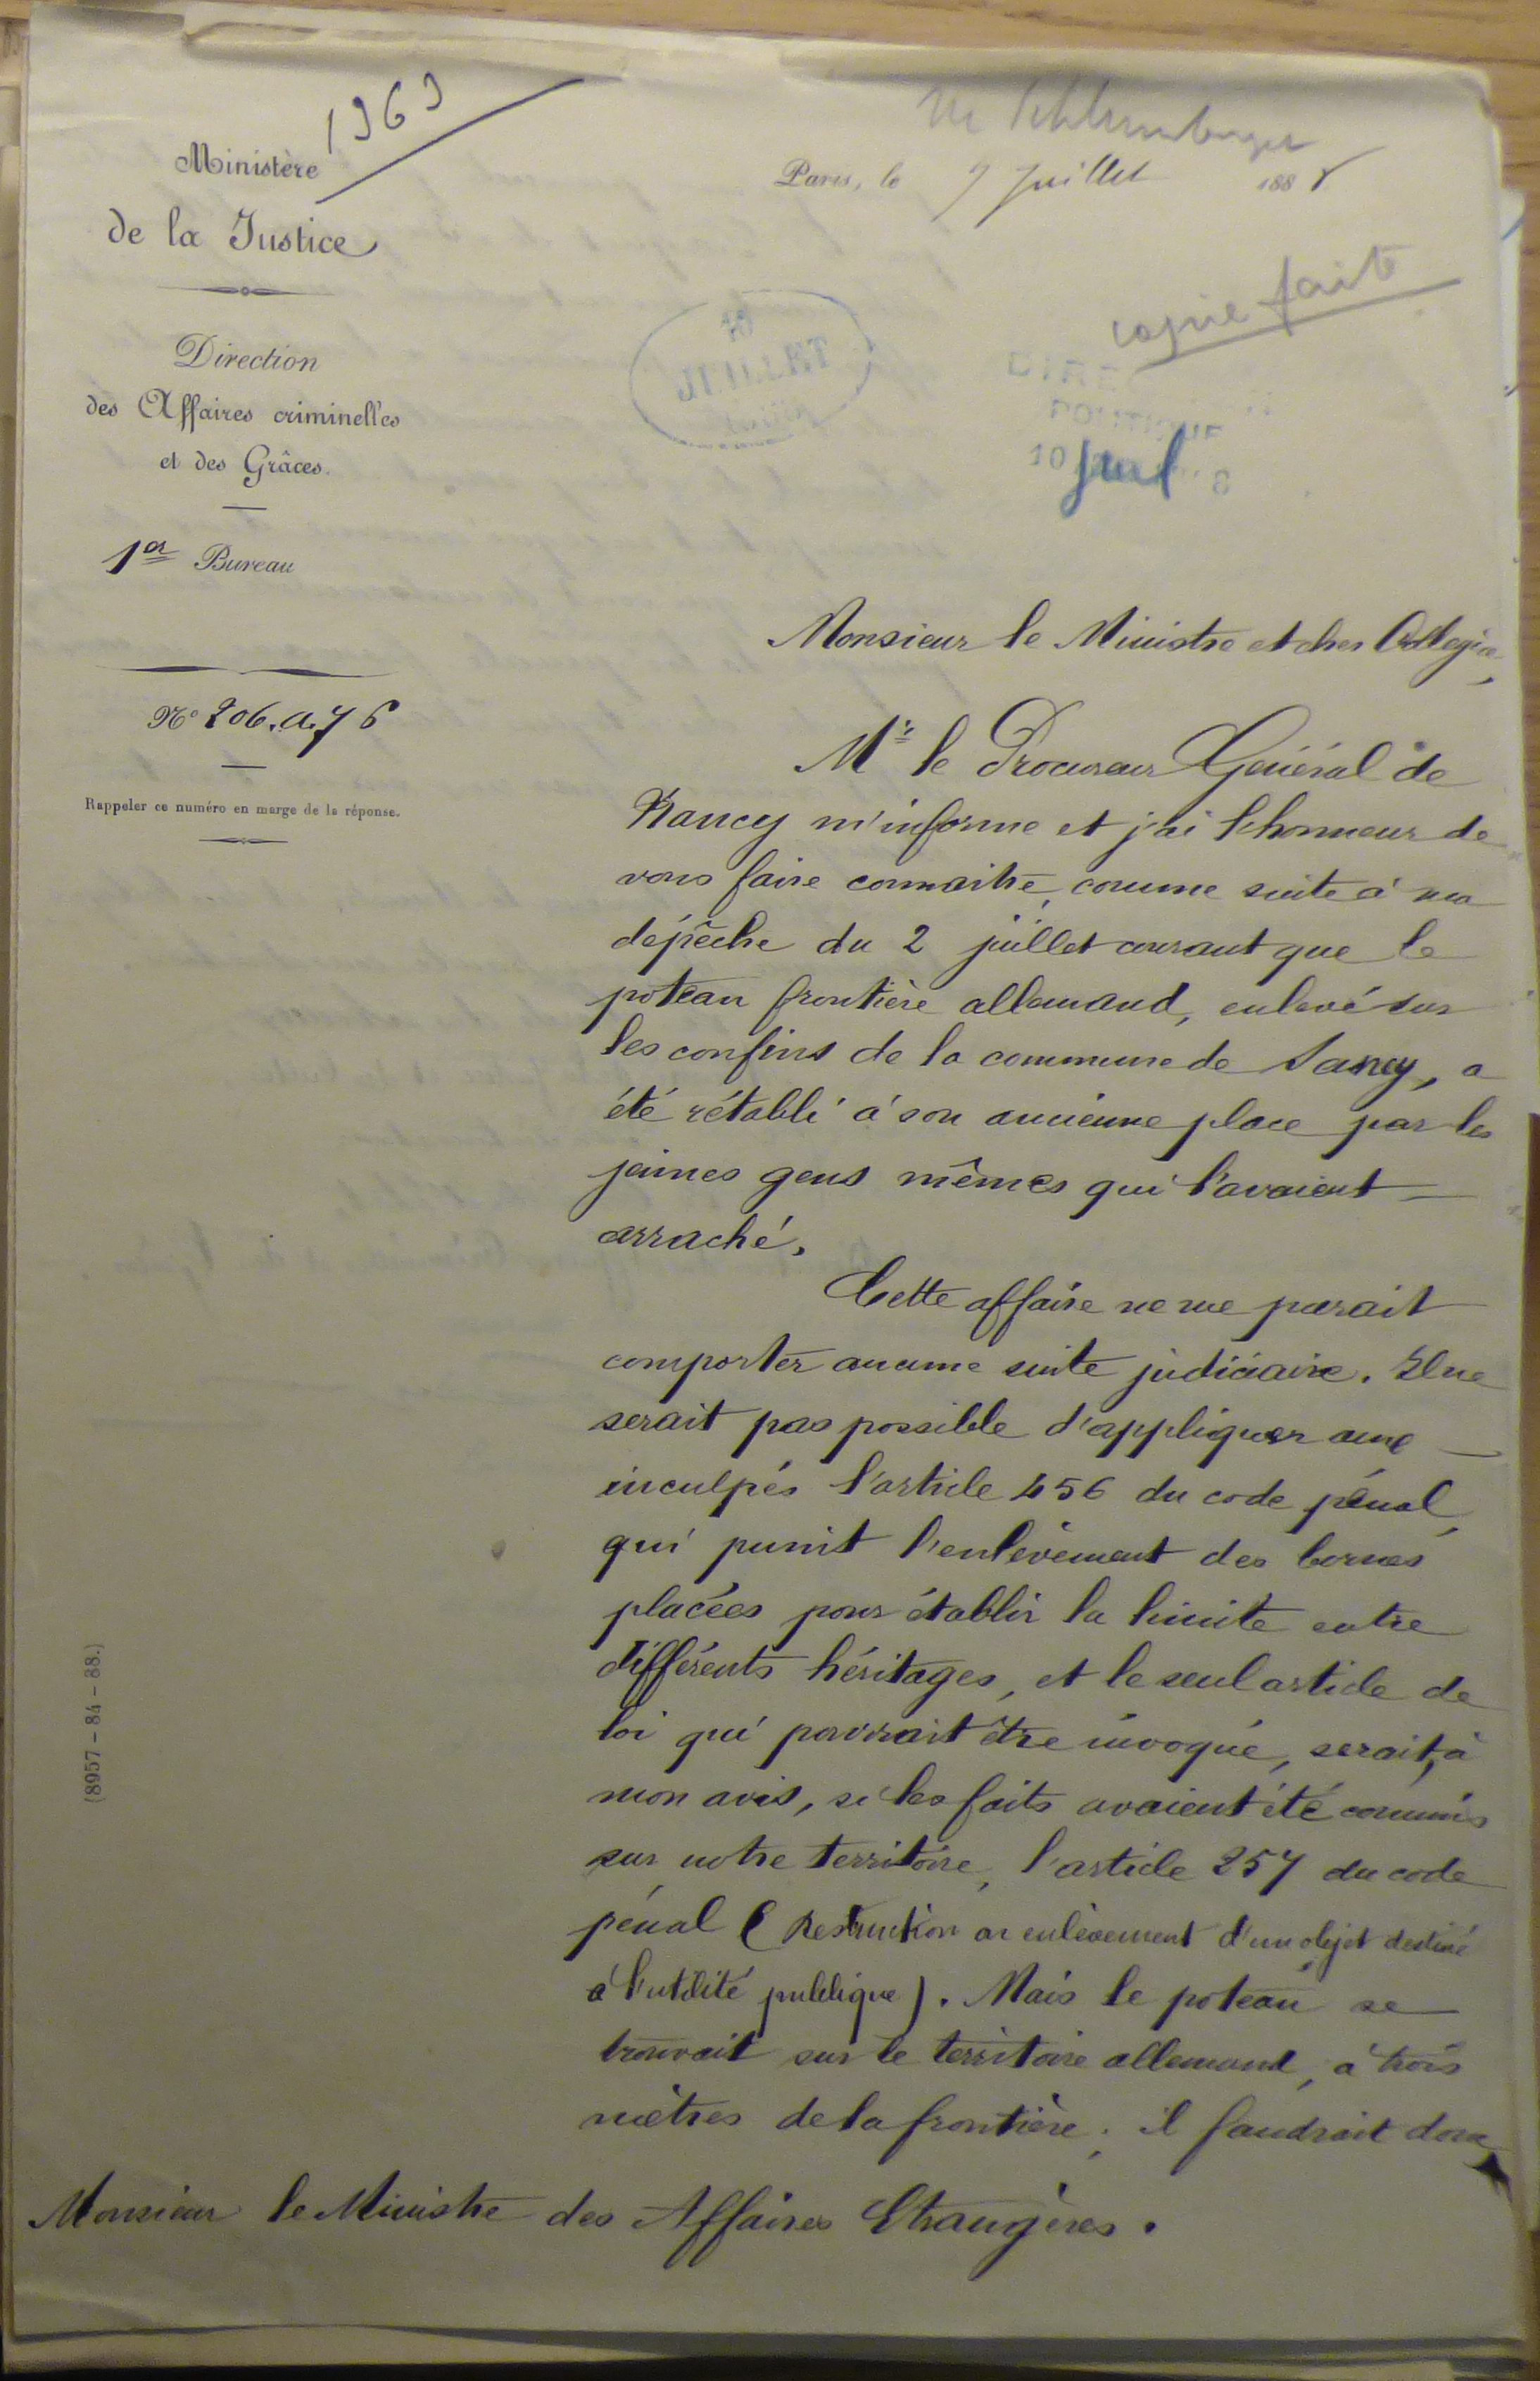 1363
Mr Schlumberger
Ministère
de la Justice
Paris, le 9 Juillet 1888
Direction
des Affaires criminelles
et des Grâces.
copie faite
JUILLET
DIRE
POLITIQUE
10 Juil 8
1er Bureau
No 206.a.76
Rappeler ce numéro en marge de la réponse.
Monsieur le Ministre et cher Collègue,
Mr le Procureur Général de
Nancy m'informe et j'ai l'honneur de
vous faire connaitre, comme suite à ma
dépêche du 2 juillet courant que le
poteau frontière allemand, enlevé sur
les confins de la commune de Sancy, a
été rétabli à son ancienne place par les
jeunes gens mêmes qui l'avaient
arraché.
Cette affaire ne me parait
comporter aucune suite judiciaire. Il ne
serait pas possible d'appliquer aux
inculpés l'article 456 du code pénal,
qui punit l'enlèvement des bornes
placées pour établir la limite entre
différents héritages, et le seul article de
loi qui pourrait être invoqué, serait, à
mon avis, si les faits avaient été commis
sur notre territoire, l'article 257 du code
pénal (Destruction ou enlèvement d'un objet destiné
à l'utilité publique). Mais le poteau se
trouvait sur le territoire allemand, à trois
mètres de la frontière; il faudrait donc
Monsieur le Ministre des Affaires Etrangères.
(8957-84-88.)